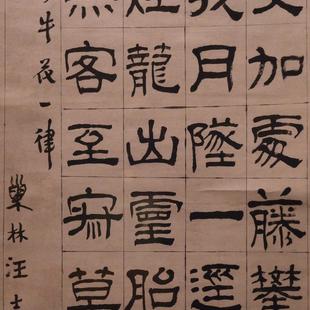 加處藤攀
月墜一逕
龍出靈胎
客至草
牛花一律
巢林汪士